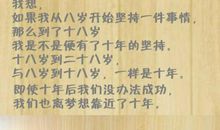 我想，
如果我从八岁开始坚持一件事情，
那么到了十八岁
我是不是便有了十年的坚持。
十八岁到二十八岁，
与八岁到十八岁，一样是十年。
即使十年后我们没办法成功，
我们也离梦想靠近了十年。